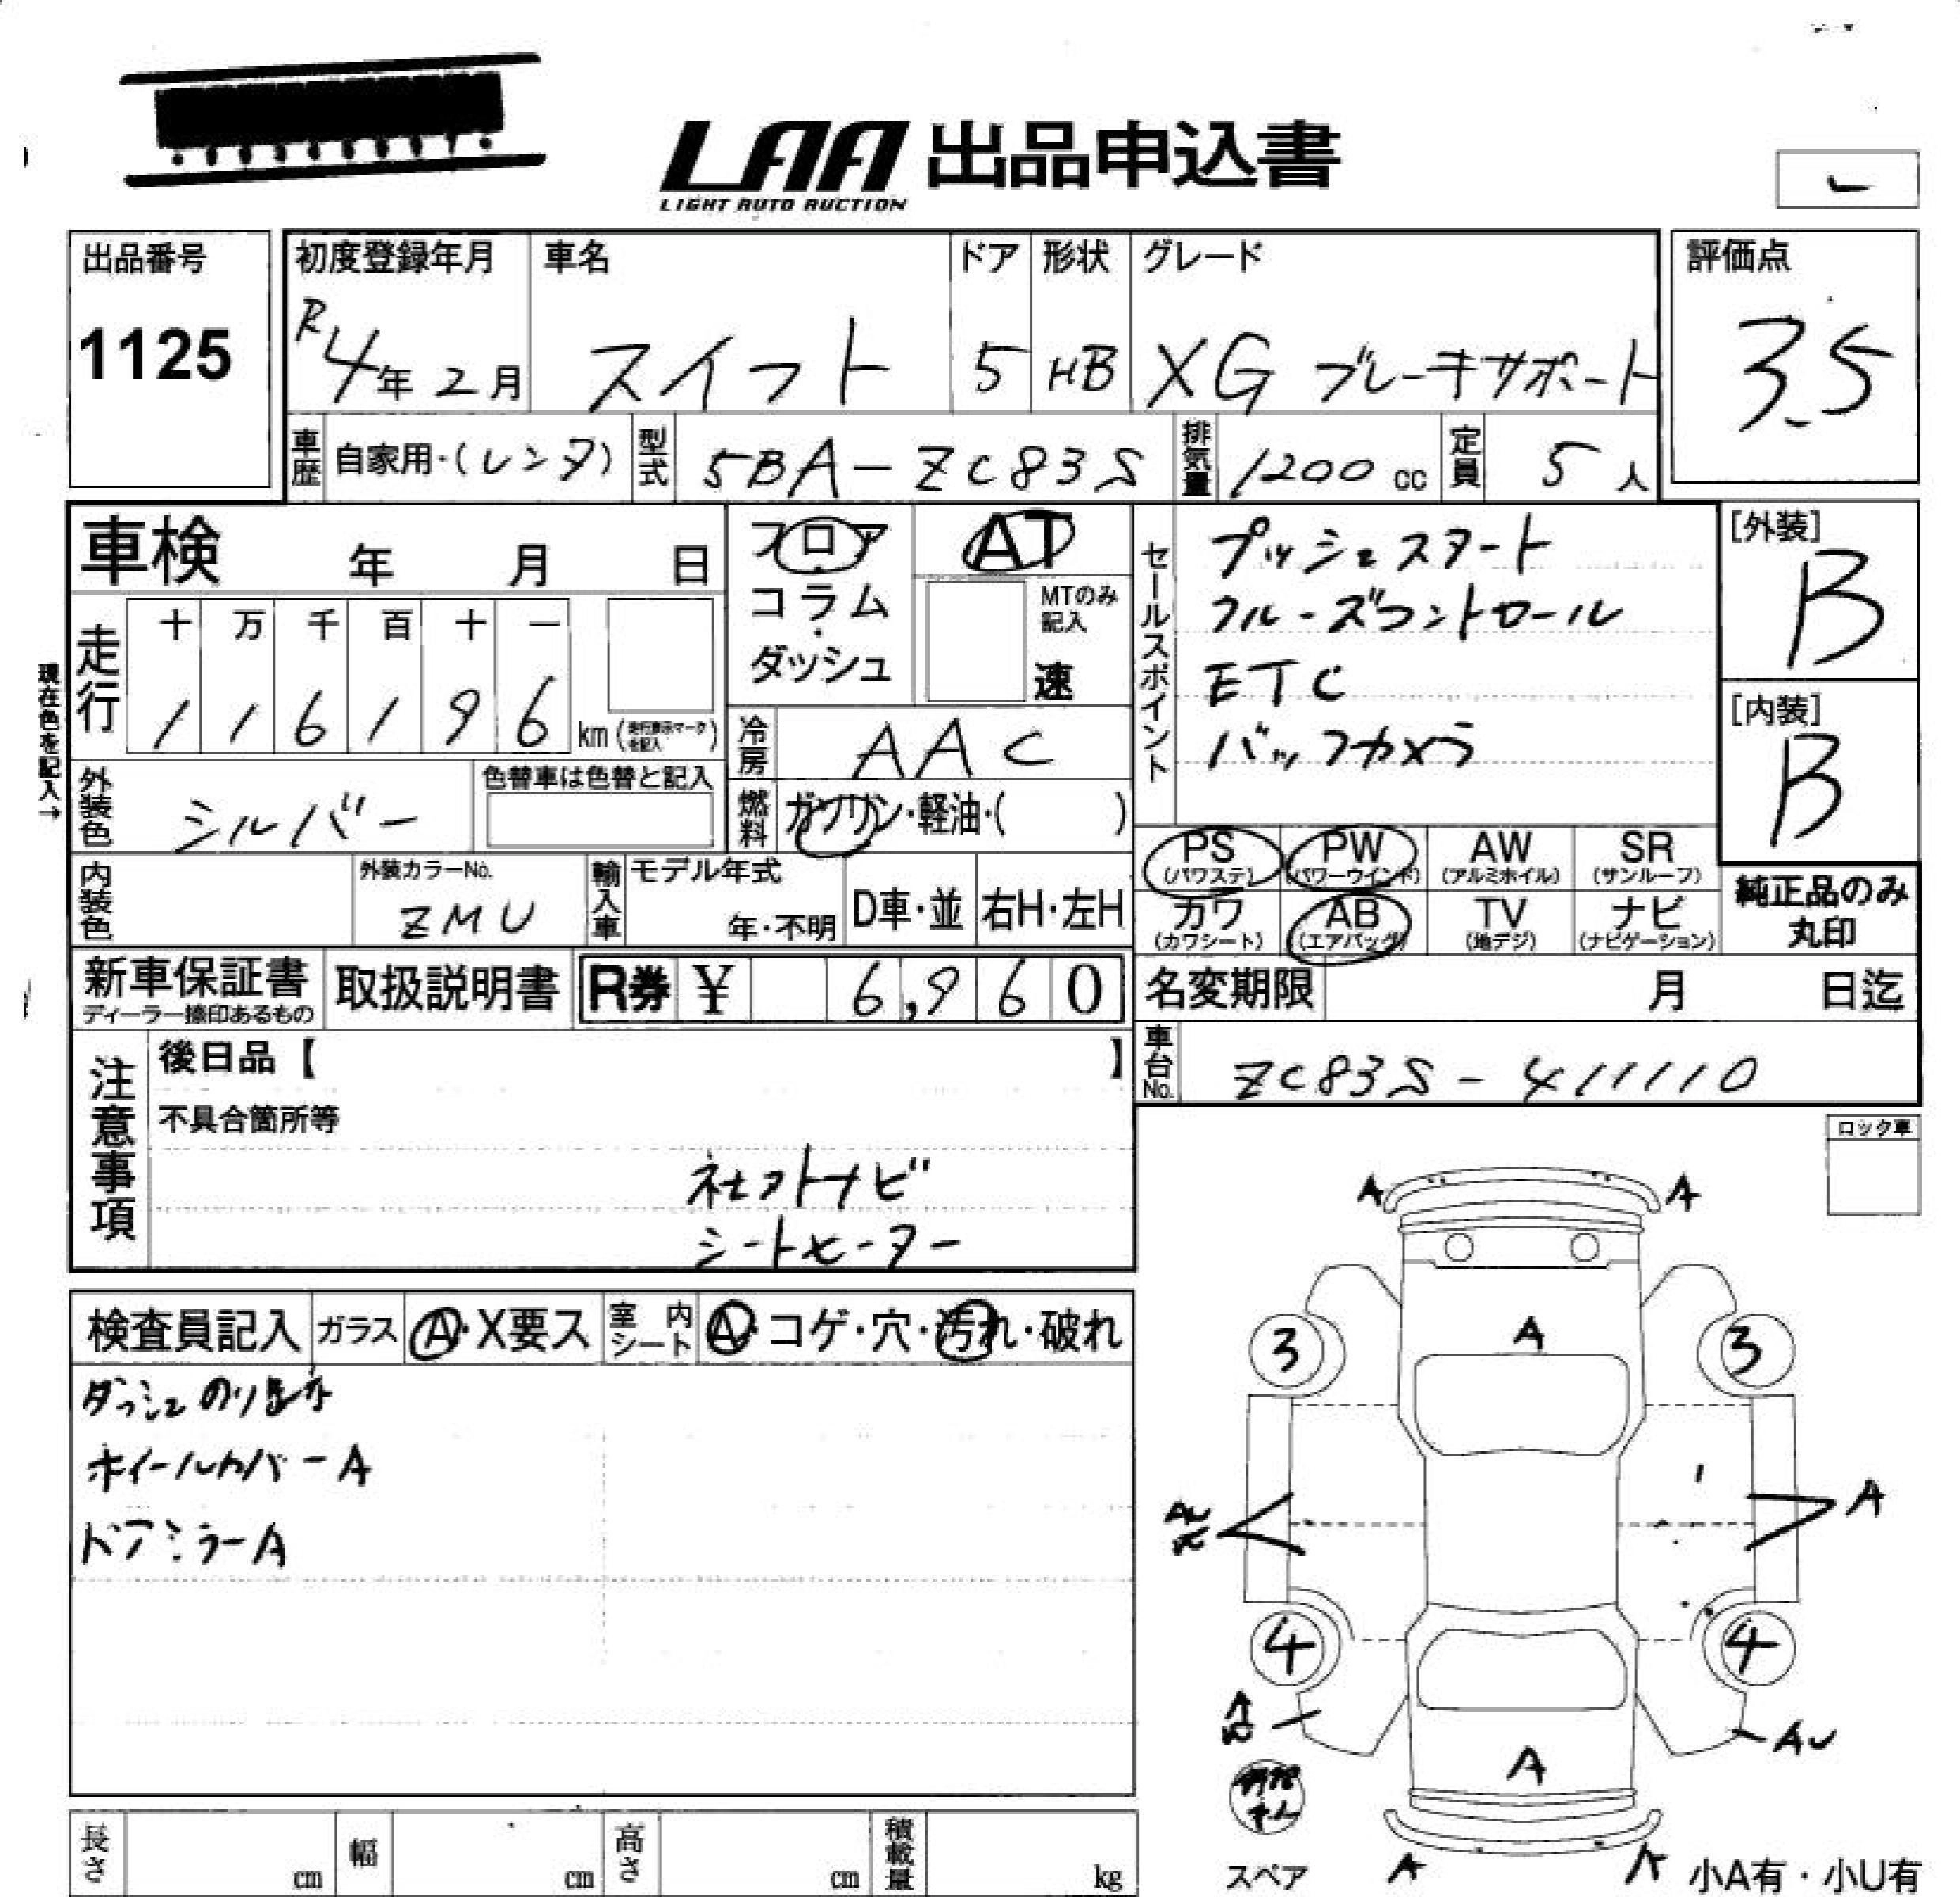 LAA 出品申込書
LIGHT AUTO AUCTION
出品番号
1125
初度登録年月
R4年2月
車名
スイフト
ドア
5
形状
HB
グレード
XG ブレーキサポート
評価点
3.5
車歴 自家用・(レンタ)
型式 5BA-ZC83S
排気量 1200cc
定員 5人
車検 年 月 日
フロア
コラム
ダッシュ
AT
MTのみ記入
速
セールスポイント
プッシュスタート
クルーズコントロール
ETC
バックカメラ
[外装]
B
[内装]
B
現在色を記入→
走行 十 万 千 百 十 一
116196 km (走行表示マークを記入)
冷房 AAC
外装色 シルバー
色替車は色替と記入
燃料 ガソリン・軽油・( )
PS (パワステ)
PW (パワーウインド)
AW (アルミホイル)
SR (サンルーフ)
カワ (カワシート)
AB (エアバッグ)
TV (地デジ)
ナビ (ナビゲーション)
純正品のみ
丸印
内装色
外装カラーNo.
ZMU
輸入車 モデル年式
年・不明
D車・並
右H・左H
新車保証書
ディーラー捺印あるもの
取扱説明書
R券 ¥ 6,960
名変期限 月 日迄
車台No. ZC83S-411110
注意事項
後日品【 】
不具合箇所等
社外ナビ
シートヒーター
ロック車
検査員記入
ガラス A・X要ス
室内シート A・コゲ・穴・汚れ・破れ
ダッシュのり跡
ホイールカバーA
ドアミラーA
A A
A
3 3
A
4 4
AU
A
A A
スペア
小A有・小U有
長さ cm
幅 cm
高さ cm
積載量 kg